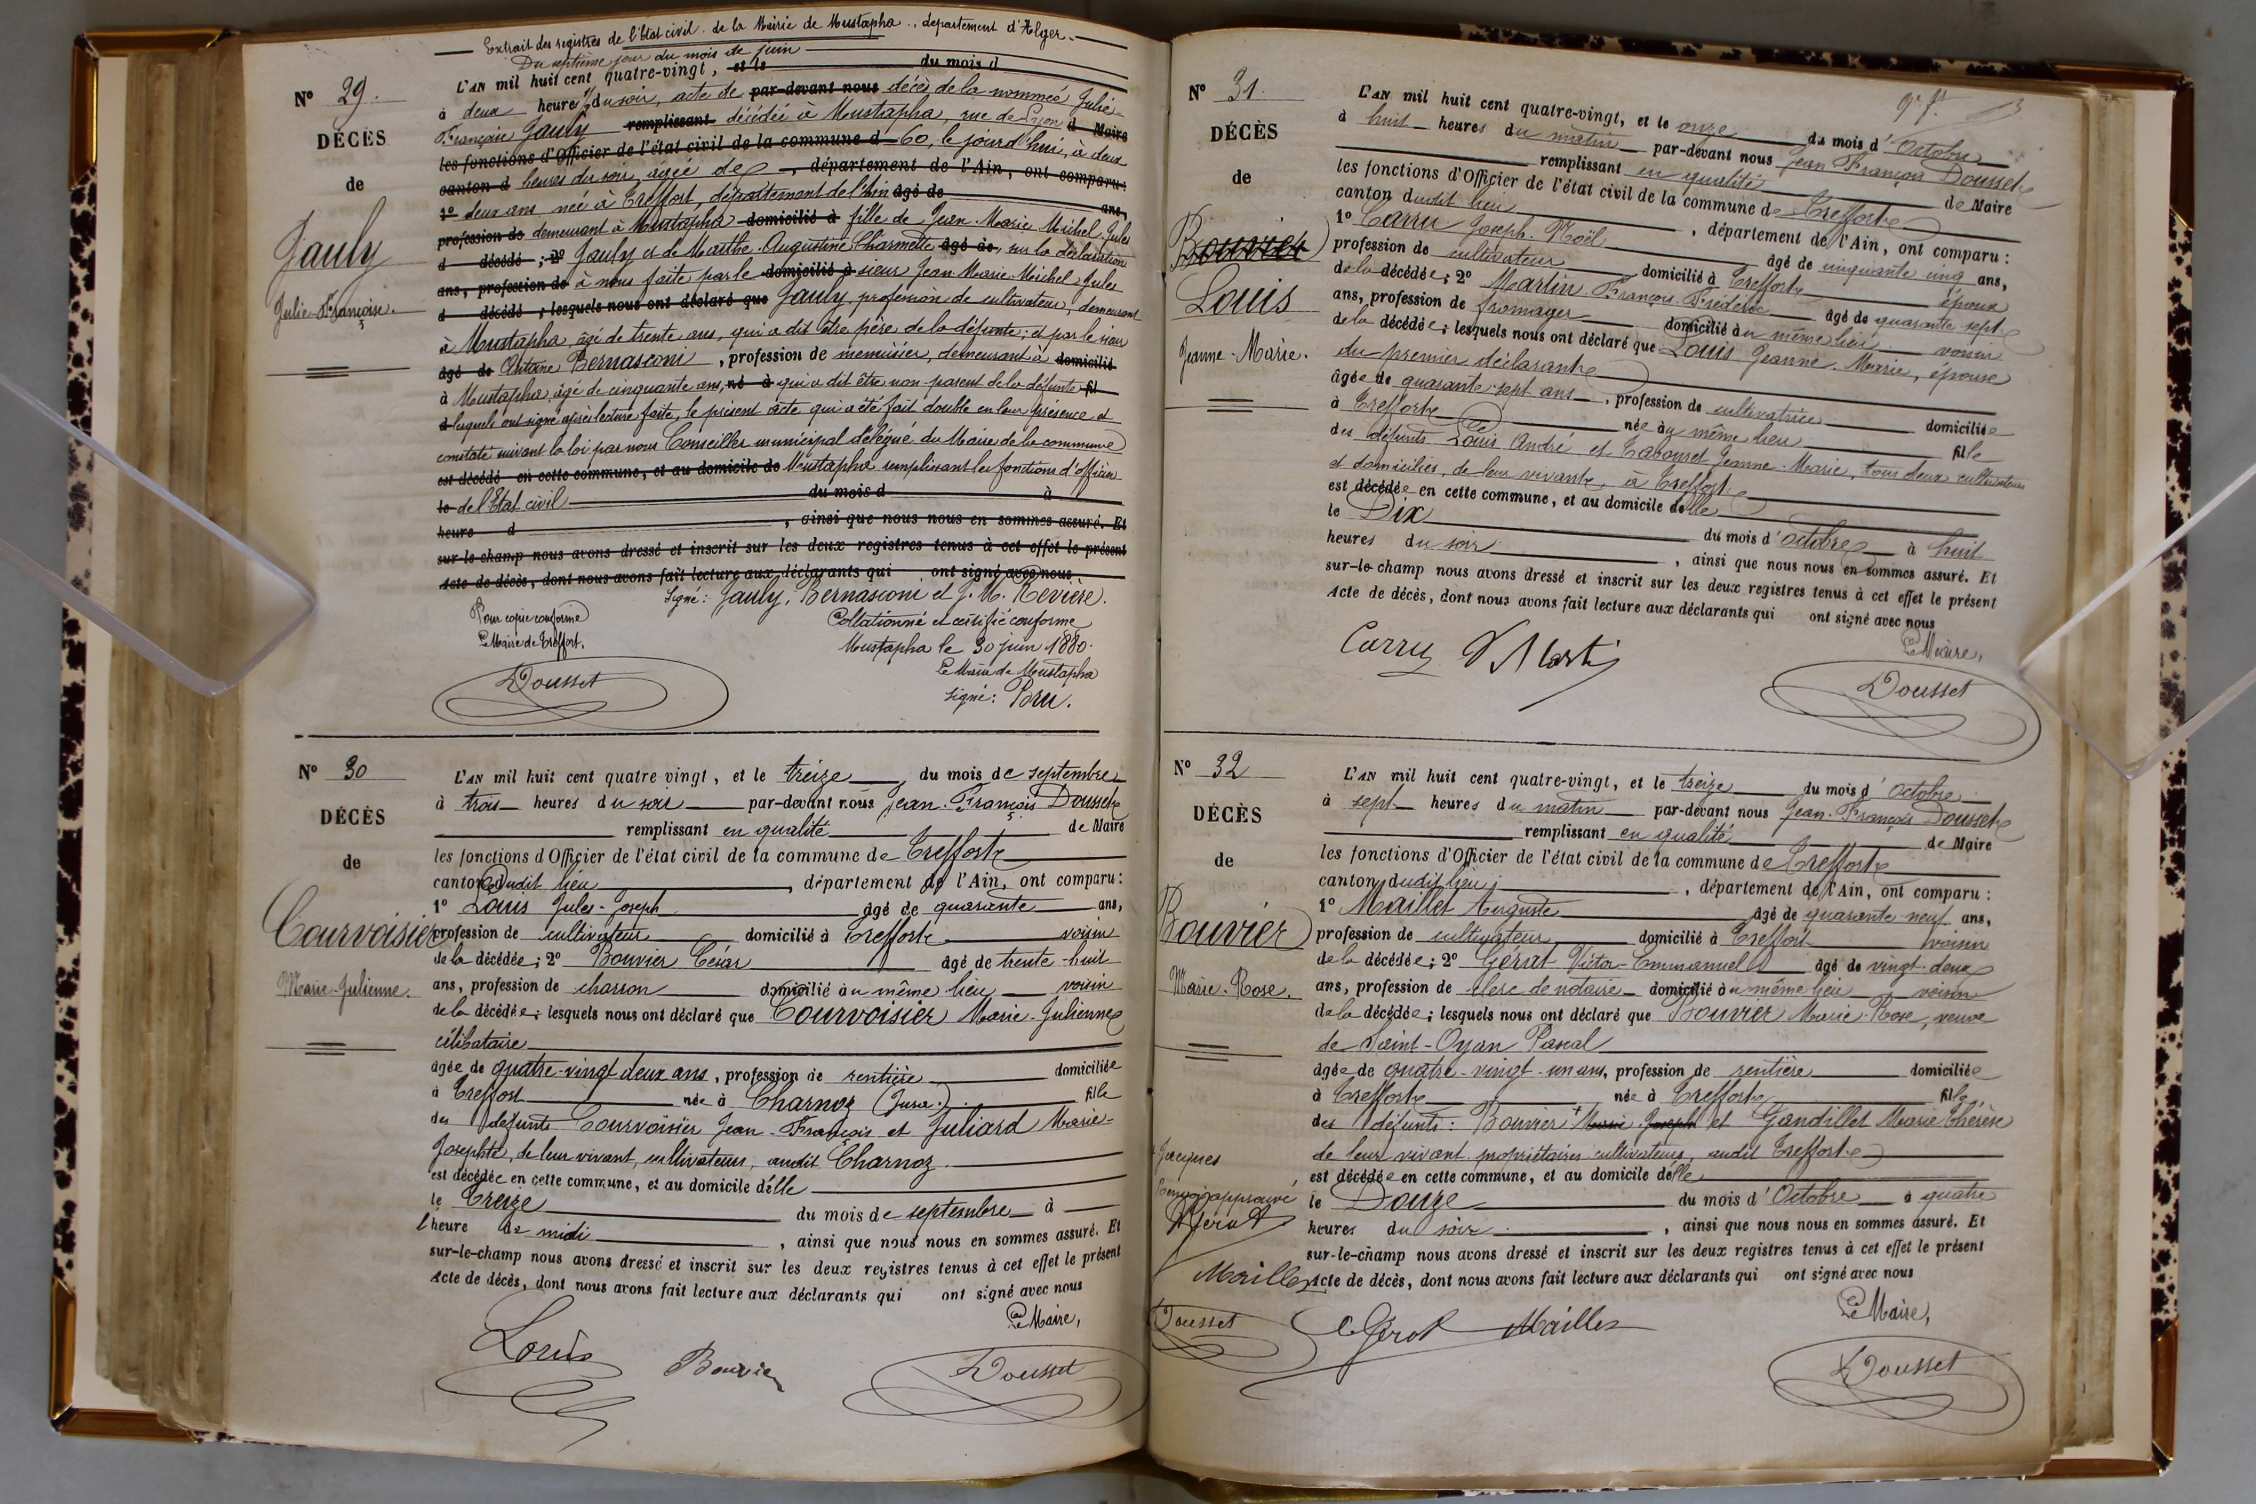 Extrait des registres de l'Etat civil de la Mairie de Mustapha, département d'Alger.
Du septième jour du mois de juin
N° 29.
DÉCÈS
de
Jauly
Julie-Françoise.
L'AN mil huit cent quatre-vingt, et le du mois d
à deux heures du soir, acte de par-devant nous décès de la nommée Julie-
Françoise Jauly remplissant décédée à Mustapha, rue de Lyon d Maire
les fonctions d'Officier de l'état civil de la commune d 60, le jourd'hui, à deux
canton d heures du soir, âgée de , département de l'Ain, ont comparu:
1° deux ans née à Treffort, département de l'Ain âgé de ans,
profession de demeurant à Mustapha domicilié à fille de Jean-Marie-Michel-Jules
d décédé ; 2° Jauly et de Marthe-Augustine Charmette âgé de , sur la déclaration
ans, profession de à nous faite par le domicilié à sieur Jean-Marie-Michel-Jules
d décédé ; lesquels nous ont déclaré que Jauly, profession de cultivateur, demeurant
à Mustapha, âgé de trente ans, qui a dit être père de la défunte; et par le sieur
âgé de Antoine Bernasconi, profession de menuisier, demeurant à domicilié
à Mustapha, âgé de cinquante ans, né à qui a dit être non parent de la défunte fil
d lesquels ont signé après lecture faite, le présent acte qui a été fait double en leur présence et
constaté suivant la loi par nous Conseiller municipal délégué du Maire de la commune
est décédé en cette commune, et au domicile de Mustapha remplissant les fonctions d'officier
le de l'Etat civil du mois d à
heure d , ainsi que nous nous en sommes assuré. Et
sur-le-champ nous avons dressé et inscrit sur les deux registres tenus à cet effet le présent
Acte de décès, dont nous avons fait lecture aux déclarants qui ont signé avec nous
Signé: Jauly, Bernasconi et J. M. Revière.
Pour copie conforme
Le Maire de Treffort.
Dousset
Collationné et certifié conforme
Mustapha le 30 juin 1880.
Le Maire de Mustapha
Signé: Bru.
N° 30
DÉCÈS
de
Courvoisier
Marie-Julienne.
L'AN mil huit cent quatre vingt, et le treize du mois de septembre
à trois heures du soir par-devant nous Jean-François Dousset
remplissant en qualité de Maire
les fonctions d'Officier de l'état civil de la commune de Treffort
canton dudit lieu, département de l'Ain, ont comparu:
1° Louis Jules-Joseph âgé de quarante ans,
profession de cultivateur domicilié à Treffort voisin
de la décédée; 2° Bouvier César âgé de trente-huit
ans, profession de charron domicilié au même lieu voisin
de la décédée; lesquels nous ont déclaré que Courvoisier Marie-Julienne
célibataire
âgée de quatre-vingt deux ans, profession de rentière domiciliée
à Treffort née à Charnoz (Jura.) fille
des défunts Courvoisier Jean-François et Juliard Marie-
Josephte, de leur vivant, cultivateurs, audit Charnoz.
est décédée en cette commune, et au domicile d'elle
le Treize du mois de septembre à
l'heure de midi, ainsi que nous nous en sommes assuré. Et
sur-le-champ nous avons dressé et inscrit sur les deux registres tenus à cet effet le présent
Acte de décès, dont nous avons fait lecture aux déclarants qui ont signé avec nous
Le Maire,
Louis Bouvier Dousset
N° 31.
DÉCÈS
de
Bouvier
Louis
Jeanne-Marie.
L'AN mil huit cent quatre-vingt, et le onze du mois d'Octobre
à huit heures du matin par-devant nous Jean François Dousset
remplissant en qualité de Maire
les fonctions d'Officier de l'état civil de la commune de Treffort
canton dudit lieu, département de l'Ain, ont comparu:
1° Carru Joseph-Noël âgé de cinquante cinq ans,
profession de cultivateur domicilié à Treffort époux
de la décédée; 2° Martin François-Frédéric âgé de quarante sept
ans, profession de fromager domicilié au même lieu voisin
de la décédée; lesquels nous ont déclaré que Louis Jeanne-Marie, épouse
du premier déclarant
âgée de quarante-sept ans, profession de cultivatrice domiciliée
à Treffort née au même lieu fille
des défunts Louis André et Tabouret Jeanne-Marie, tous deux cultivateurs
et domiciliés, de leur vivant, à Treffort
est décédée en cette commune, et au domicile d'elle
le Dix du mois d'octobre à huit
heures du soir, ainsi que nous nous en sommes assuré. Et
sur-le-champ nous avons dressé et inscrit sur les deux registres tenus à cet effet le présent
Acte de décès, dont nous avons fait lecture aux déclarants qui ont signé avec nous
Le Maire,
Carru Martin
Dousset
N° 32
DÉCÈS
de
Bouvier
Marie-Rose.
L'AN mil huit cent quatre-vingt, et le treize du mois d'Octobre
à sept heures du matin par-devant nous Jean-François Dousset
remplissant en qualité de Maire
les fonctions d'Officier de l'état civil de la commune de Treffort
canton dudit lieu, département de l'Ain, ont comparu:
1° Maillet Auguste âgé de quarante-neuf ans,
profession de cultivateur domicilié à Treffort voisin
de la décédée; 2° Gérat Victor-Emmanuel âgé de vingt-deux
ans, profession de clerc de notaire domicilié au même lieu voisin
de la décédée; lesquels nous ont déclaré que Bouvier Marie-Rose, veuve
de Saint-Oyan Pascal
âgée de quatre-vingt-un ans, profession de rentière domiciliée
à Treffort née à Treffort fille
des défunts: Bouvier + Marie Joseph et Gandillet Marie Thérèse
de leur vivant propriétaires cultivateurs, audit Treffort
est décédée en cette commune, et au domicile d'elle
le Douze du mois d'Octobre à quatre
heures du soir, ainsi que nous nous en sommes assuré. Et
sur-le-champ nous avons dressé et inscrit sur les deux registres tenus à cet effet le présent
Acte de décès, dont nous avons fait lecture aux déclarants qui ont signé avec nous
+ Jacques
approuvé
Gérat
Maillet
Dousset
Le Maire,
Gérat Maillet
Dousset